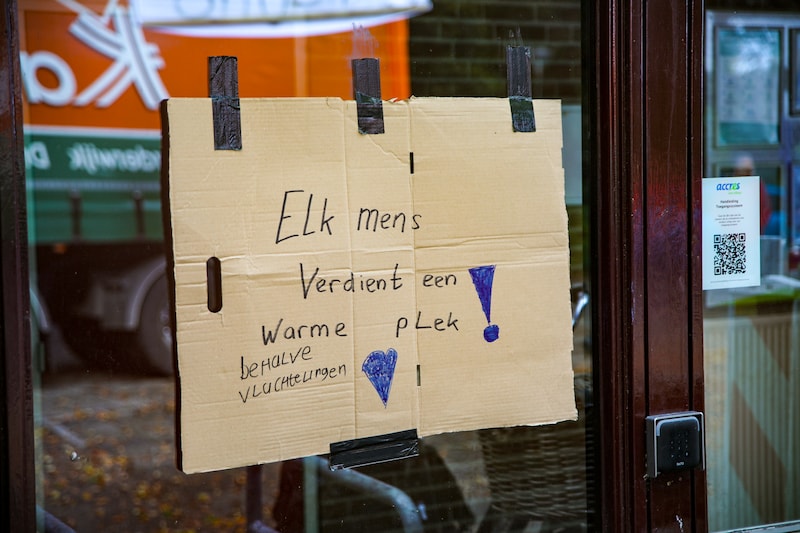 Elk mens
Verdient een
Warme plek !
behalve
vluchtelingen
accres